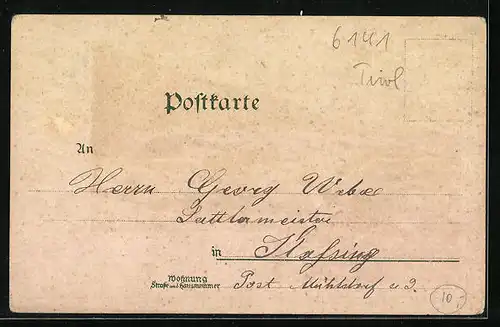 6141
Tirol
Postkarte
An
Herrn Georg Weber
Sattlermeister
in
Wohnung
Straße und Hausnummer
Post Mühldorf a. I.
10,